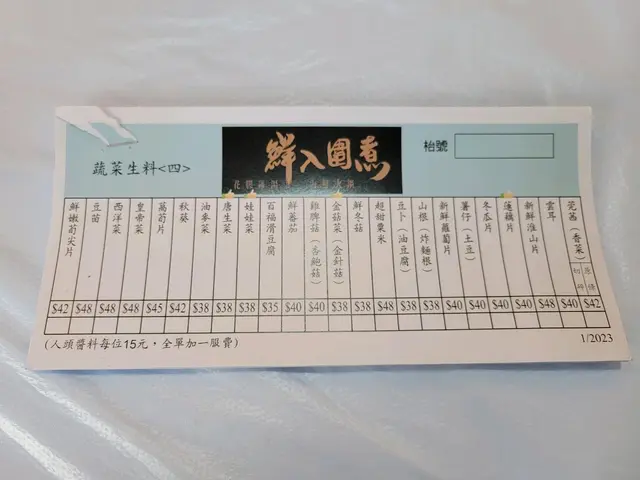 蔬菜生料<四>
鮮入圍煮
枱號
鮮嫩荀尖片
豆苗
西洋菜
皇帝菜
萵荀片
秋葵
油麥菜
唐生菜
娃娃菜
百福滑豆腐
鮮蕃茄
雞脾菇(杏鮑菇)
金菇菜(金針菇)
鮮冬菇
超甜粟米
豆卜(油豆腐)
山根(炸麵根)
新鮮蘿蔔片
薯仔(土豆)
冬瓜片
蓮藕片
新鮮淮山片
雲耳
芫茜(香菜)
切碎 原條
$42 $48 $48 $48 $45 $42 $38 $38 $38 $35 $40 $40 $38 $38 $48 $38 $38 $40 $40 $40 $40 $40 $48 $40 $42
(人頭醬料每位15元,全單加一服費)
1/2023